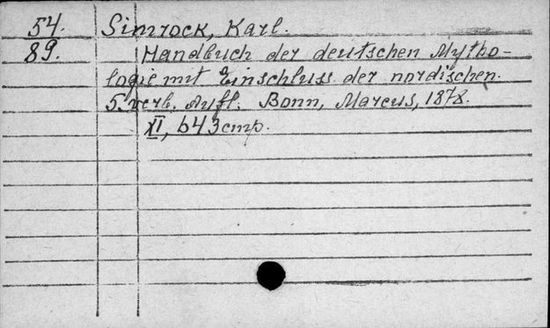 54.
89.
Simrock, Karl.
Handbuch der deutschen Mytho-
logie mit Einschluss der nordischen.
5. verb. Aufl. Bonn, Marcus, 1878.
XI, 643 стр.